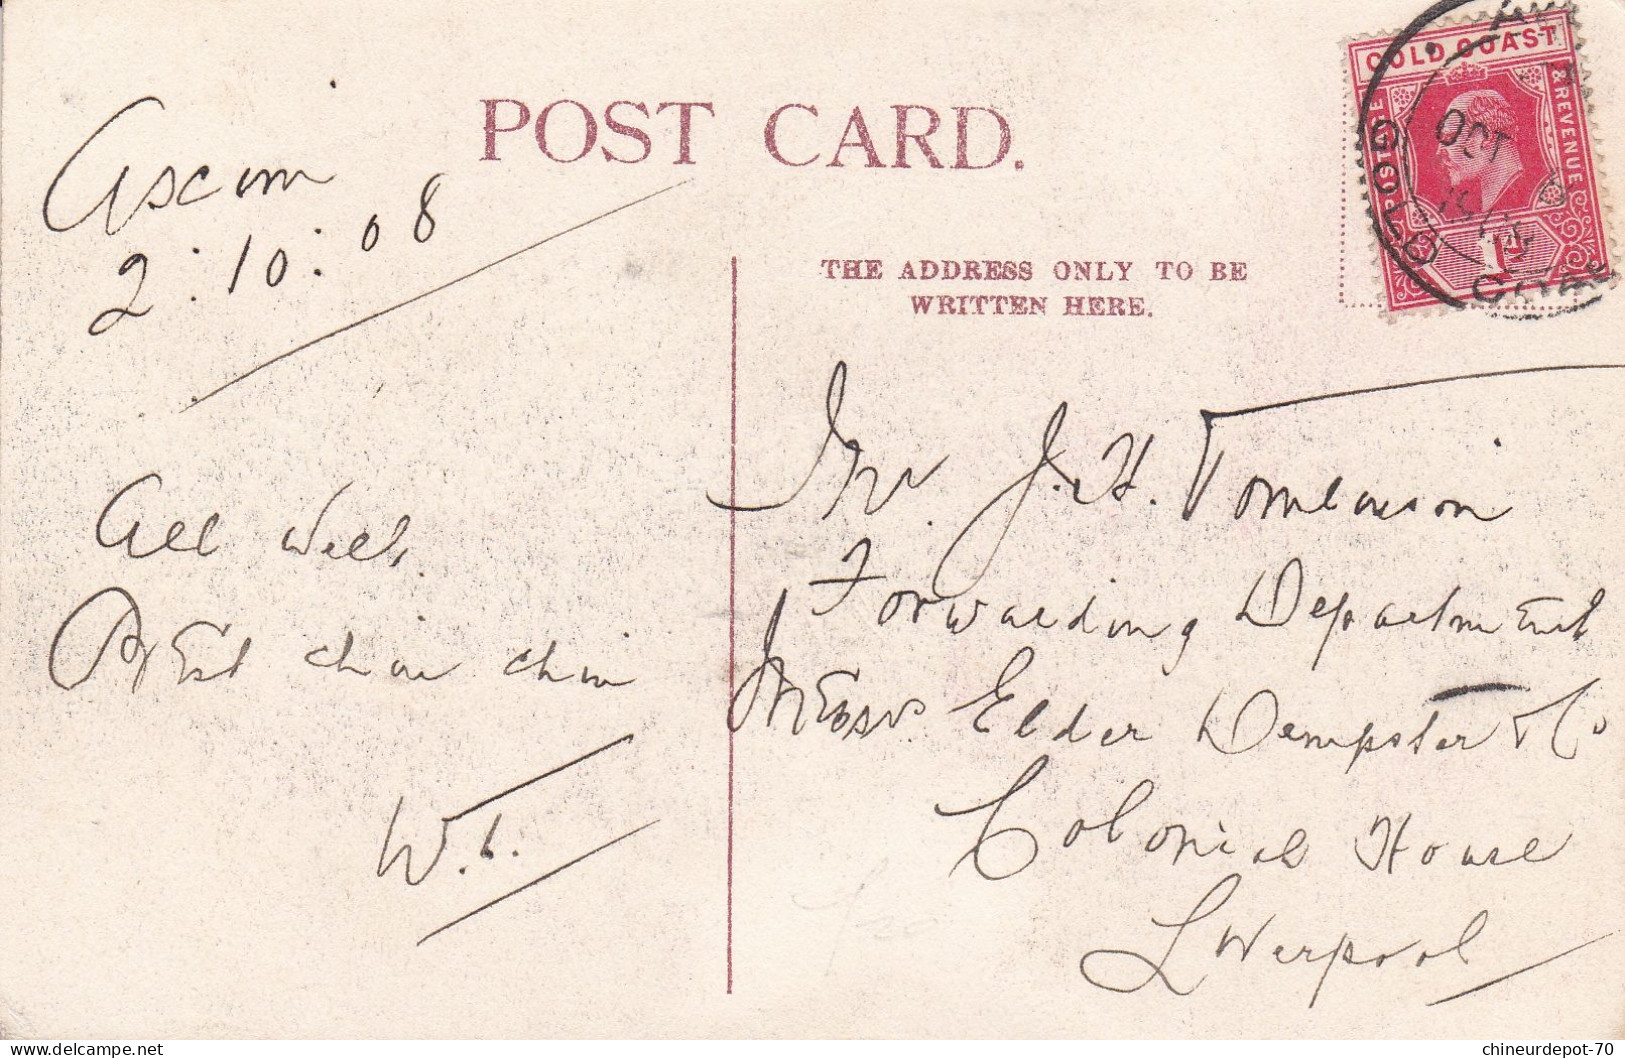 POST CARD.
Axim
2:10:08
GOLD COAST
POSTAGE & REVENUE
1D
OCT
GOLD
THE ADDRESS ONLY TO BE
WRITTEN HERE.
All Well.
Best chin chin
Mr. J. H. Tomlinson
Forwarding Department
Messrs Elder Dempster & Co
Colonial House
Liverpool
delcampe.net
chineurdepot-70